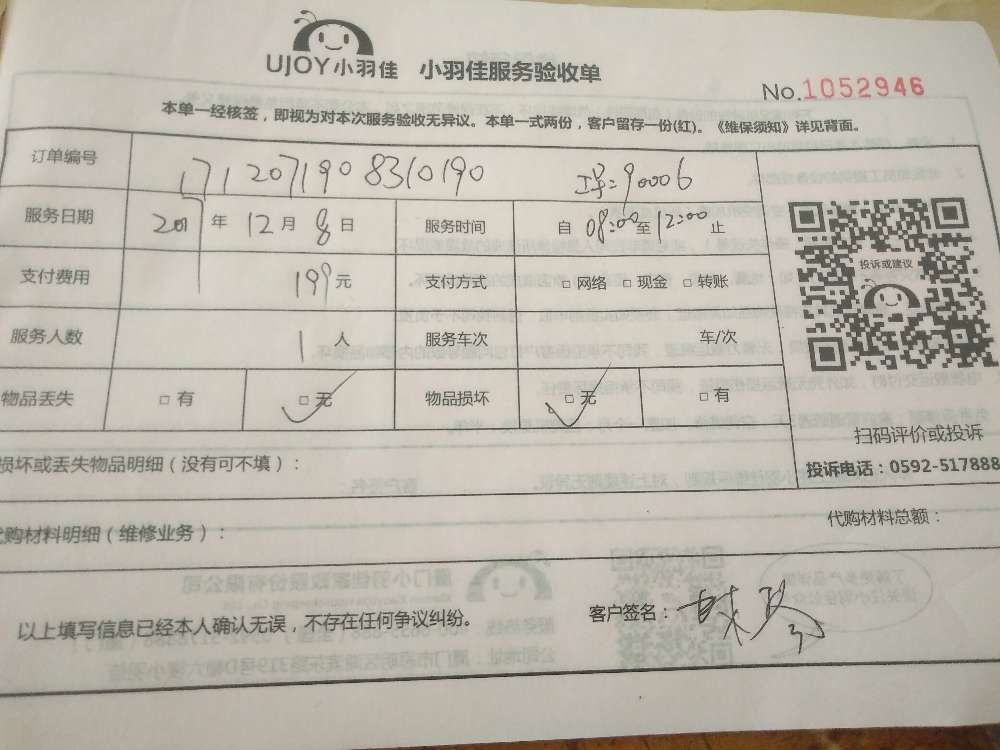 UJOY小羽佳 小羽佳服务验收单
No.1052946
本单一经核签，即视为对本次服务验收无异议。本单一式两份，客户留存一份(红)。《维保须知》详见背面。
订单编号 1712071908310190 工号：90006
服务日期 2017年12月8日 服务时间 自08:00至12:00止
支付费用 199元 支付方式 □ 网络 □ 现金 □ 转账
投诉或建议
服务人数 1人 服务车次 车/次
物品丢失 □ 有 □ 无 物品损坏 □ 无 □ 有
扫码评价或投诉
损坏或丢失物品明细（没有可不填）：
投诉电话：0592-517888
代购材料明细（维修业务）：
代购材料总额：
以上填写信息已经本人确认无误，不存在任何争议纠纷。
客户签名：